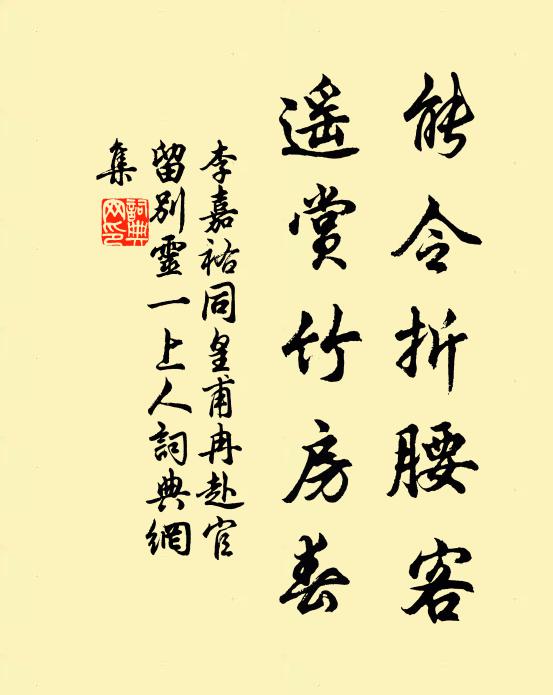 能令折腰客
遥赏竹房春
李嘉祐同皇甫冉赴官
留别靈一上人詞典網
集
詞典網印